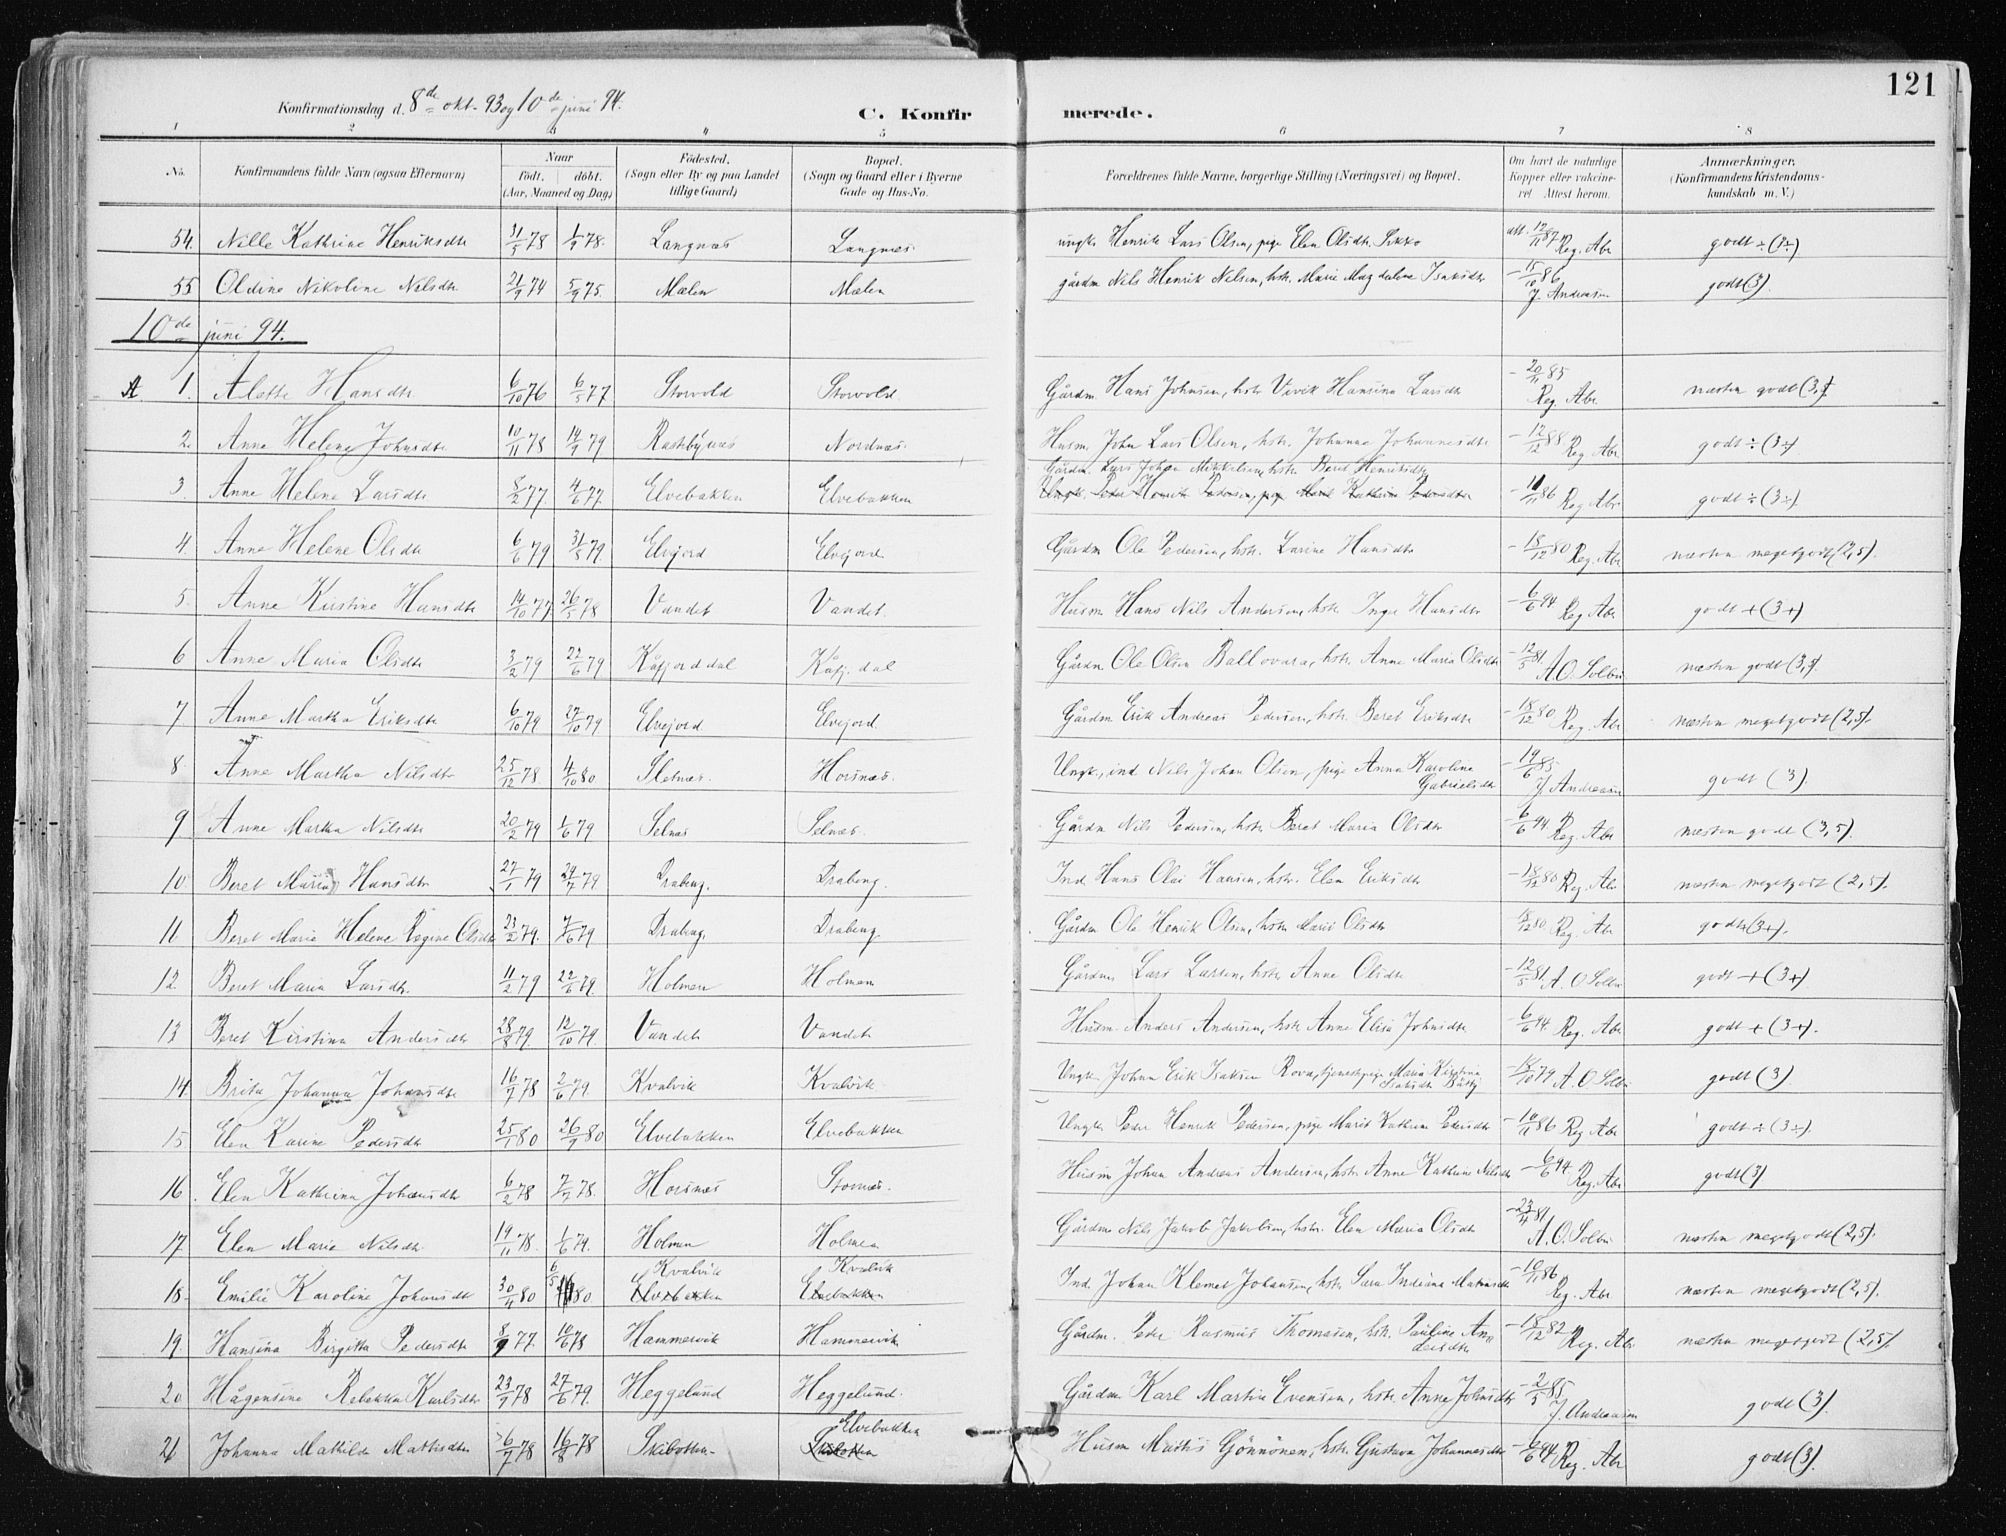 121
Konfirmationsdag d. 8de okt. 93 og 10de juni 94.
C. Konfirmerede.
1 2 3 4 5 6 7 8
No. | Konfirmandens fulde Navn (ogsaa Efternavn) | Naar født. døbt. (Aar, Maaned og Dag) | Fødested. (Sogn eller By og paa Landet tillige Gaard) | Bopæl. (Sogn og Gaard eller i Byerne Gade og Hus-No. | Forældrenes fulde Navne, borgerlige Stilling (Næringsvei) og Bopæl. | Om havt de naturlige Kopper eller vaccineret. Attest herom. | Anmærkninger. (Konfirmandens Kristendomskundskab m. V.)
54. Nille Kathrine Henriksdtr 31/5 78 1/9 78. Langnæs Langnæs ungk. Henrik Lars Olsen, pige Elen Olsdtr. att. 12/11 87 Reg. Abr godt ÷ (3÷)
55 Oldine Nikoline Nilsdtr 21/9 74 5/9 75. Mælen Mælen gårdm Nils Henrik Nilsen, hstr. Marie Magdalene Isaksdtr - 15/10 86 J. Andreasen godt (3).
10de juni 94.
A 1. Alette Hansdtr 6/10 76 6/5 77 Storvold Storvold. Gårdm. Hans Johnsen, hstr Vivik Hansina Larsdtr - 20/11 85 Reg. Abr næsten godt (3,5)
2. Anne Helene Johnsdtr 10/11 78 14/9 79 Rastebynæs Nordnæs. Husm. John Lars Olsen, hstr. Johanna Johannesdtr - 12/12 88 Reg Abr godt ÷ (3÷)
3. Anne Helene Larsdtr 8/2 77 4/6 77. Elvebakken Elvebakken Gårdm. Lars Johan Mikkelsen, hstr Beret Henriksdtr
Ungk. Peder Henrik Pedersen, pige Marit Kathrine Pedersdtr - 11/11 86 Reg Abr godt ÷ (3÷)
4. Anne Helene Olsdtr 6/6 79 31/5 79. Elvejord Elvejord. Gårdm Ole Pedersen, hstr. Larine Hansdtr - 18/12 80 Reg. Abr næsten megetgodt (2,5).
5. Anne Kirstine Hansdtr 14/10 77 26/5 78 Vandet Vandet. Husm Hans Nils Andersen, hstr Inge Hansdtr - 6/6 94 Reg Abr godt + (3+)
6 Anne Maria Olsdtr 3/2 79 22/6 79 Kåfjorddal Kåfj.dal Gårdm Ole Olsen Ballovara, hstr. Anne Maria Olsdtr - 12/5 81. A.O. Solbu næsten godt (3,5).
7 Anne Martha Eriksdtr 6/10 79 27/10 79 Elvejord. Elvejord. Gårdm Erik Andreas Pedersen, hstr. Beret Eriksdtr - 18/12 80 Reg. Abr næsten megetgodt (2,5).
8. Anne Martha Nilsdtr 25/12 78 4/10 80. Sletnæs. Horsnæs. Ungk., ind Nils Johan Olsen, pige Anna Karolina Gabrielsdtr - 19/6 85 J Andreasen godt (3)
9 Anne Martha Nilsdtr 20/2 79 1/6 79 Selnæs Selnæs. Gårdm Nils Pedersen, hstr Beret Maria Olsdtr - 6/6 94. Reg. Abr næsten godt (3,5).
10 Beret Maria Hansdtr 27/1 79 24/7 79 Drabeng. Drabeng. Ind. Hans Olai Hansen, hstr. Elen Eriksdtr - 18/12 80 Reg. Abr næsten megetgodt (2,5).
11 Beret Maria Helene Regine Olsdtr 23/2 79. 7/6 79 Drabeng. Drabeng. Gårdm Ole Henrik Olsen, hstr Marit Olsdtr 18/12 80 Reg. Abr godt + (3+).
12. Beret Maria Larsdtr. 11/2 79 22/6 79. Holmen Holmen Gårdm. Lars Larsen, hstr Anne Olsdtr - 12/5 81. A.O Solbu godt + (3+)
13 Beret Kirstina Andersdtr 28/8 79. 12/10 79. Vandet Vandet Husm. Anders Andersen, hstr Anne Elisa Johnsdtr - 6/6 94. Reg. Abr godt + (3+).
14. Brita Johanna Johansdtr 16/7 78 2/6 79. Kvalvik Kvalvik. Ungk Johan Erik Isaksen Rova, tjenestepige Maria Kirstina Isaksdtr - 18/10 79 A. O Solbu godt (3)
15 Elen Karine Pedersdtr 25/1 80 26/9 80 Elvebakken Elvebakken Ungk Peder Henrik Pedersen, pige Marit Kathrine Pedersdtr - 10/11 86 Reg Abr godt ÷ (3÷).
16. Elen Kathrina Johansdtr 6/2 78 7/7 78. Horsnæs Stornæs. Husm Johan Andreas Andersen, hstr. Anne Kathrine Nilsdtr - 6/6 94. Reg. Abr godt (3)
17. Elen Maria Nilsdtr. 19/11 78. 1/6 79. Holmen Holmen Gårdm Nils Jakob Jakobsen, hstr. Elen Maria Olsdtr - 23/4 81 A.O. Solbu næsten megetgodt (2,5).
18. Emilie Karoline Johansdtr 30/4 80 6/5 80 Kvalvik Elvebakken Kvalvik Elvebakken Ind. Johan Klemet Johansen, hstr. Sara Indiana - 10/11 86 Reg. Abr næsten megetgodt (2,5).
19. Hansina Birgitta Pedersdtr 8/9 77. 10/6 78 Hammervik Hammervik Gårdm. Peder Rasmus Thomesen, hstr. Pauline Andersdtr - 18/12 82 Reg. Abr næsten megetgodt (2,5).
20 Hågensine Rebekka Karlsdtr 23/9 78 27/6 79. Heggelund Heggelund. Gårdm Karl Martin Evensen, hstr. Anne Johnsdtr - 2/5 85 J Andreasen godt (3).
21 Johanna Mathilde Mathisdtr 6/7 78 16/8 78 Skibotten Elvebakken Skibotten Husm Mathis Gønnönen, hstr. Gustava Johannesdtr - 6/6 94 Reg. Abr godt (3).